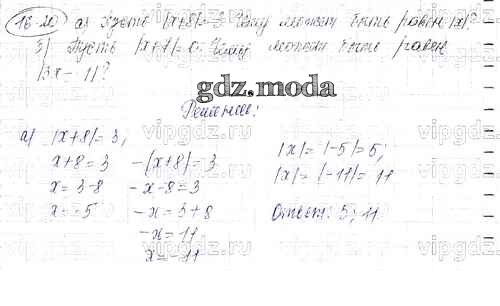 16.20 а) Пусть |x+8|=3. Чему может быть равен |x|.
б) Пусть |x+7|= Чему может быть равен
|3x-11|?
gdz.moda
Решение:
а) |x+8|=3;
x+8=3 -(x+8)=3
x=3-8 -x-8=3
x=-5 -x=3+8
-x=11
x=-11
|x|=|-5|=5;
|x|=|-11|=11
Ответ: 5; 11.